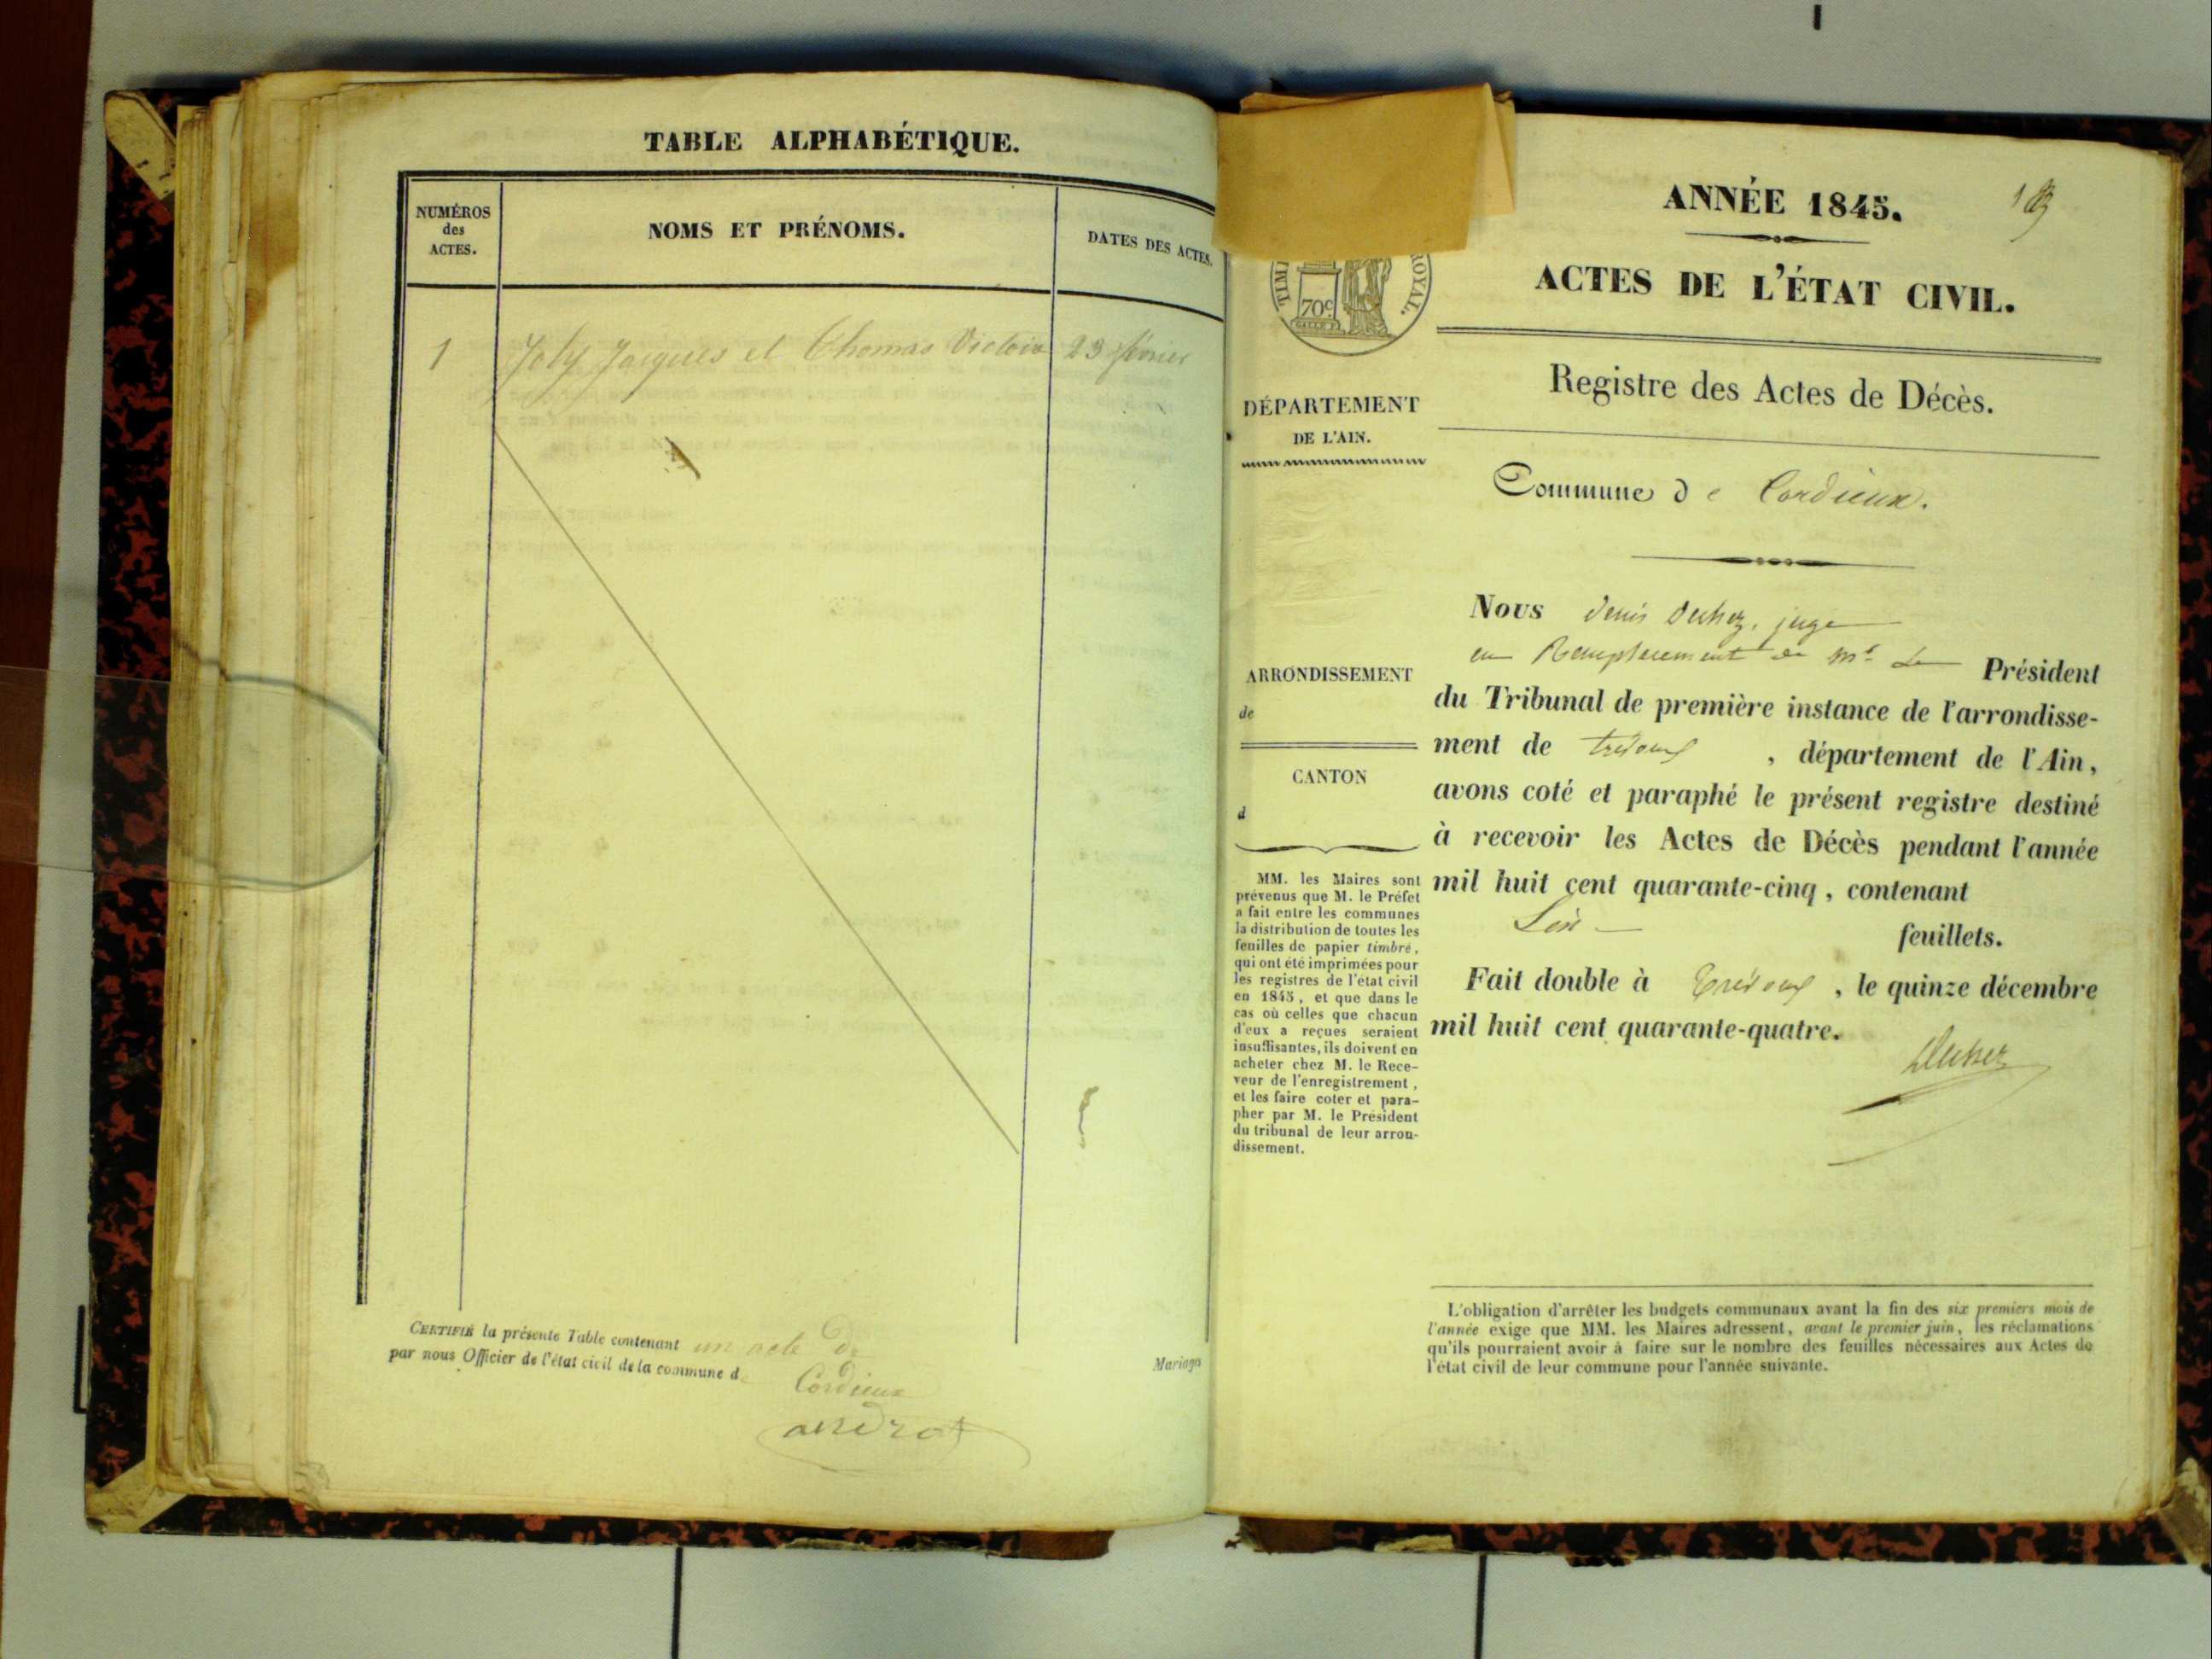 TABLE ALPHABÉTIQUE.
NUMÉROS
des
ACTES.
NOMS ET PRÉNOMS.
DATES DES ACTES.
1 Joly Jacques et Thomas Victoire 23 février
CERTIFIÉ la présente Table contenant un acte de
par nous Officier de l'état civil de la commune de
Cordieux
androt
Mariages
ANNÉE 1845.
ACTES DE L'ÉTAT CIVIL.
Registre des Actes de Décès.
Commune de Cordieux.
OYAL.
70c
DÉPARTEMENT
DE L'AIN.
ARRONDISSEMENT
de
CANTON
d
MM. les Maires sont
prévenus que M. le Préfet
a fait entre les communes
la distribution de toutes les
feuilles de papier timbré,
qui ont été imprimées pour
les registres de l'état civil
en 1845, et que dans le
cas où celles que chacun
d'eux a reçues seraient
insuffisantes, ils doivent en
acheter chez M. le Rece-
veur de l'enregistrement,
et les faire coter et para-
pher par M. le Président
du tribunal de leur arron-
dissement.
Nous Denis juge
en Remplacement de Mr. Le Président
du Tribunal de première instance de l'arrondisse-
ment de trévoux, département de l'Ain,
avons coté et paraphé le présent registre destiné
à recevoir les Actes de Décès pendant l'année
mil huit cent quarante-cinq, contenant
feuillets.
Fait double à Trévoux, le quinze décembre
mil huit cent quarante-quatre.
L'obligation d'arrêter les budgets communaux avant la fin des six premiers mois de
l'année exige que MM. les Maires adressent, avant le premier juin, les réclamations
qu'ils pourraient avoir à faire sur le nombre des feuilles nécessaires aux Actes de
l'état civil de leur commune pour l'année suivante.